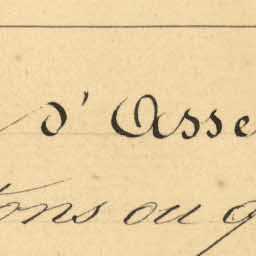 d'Asse
tions ou q